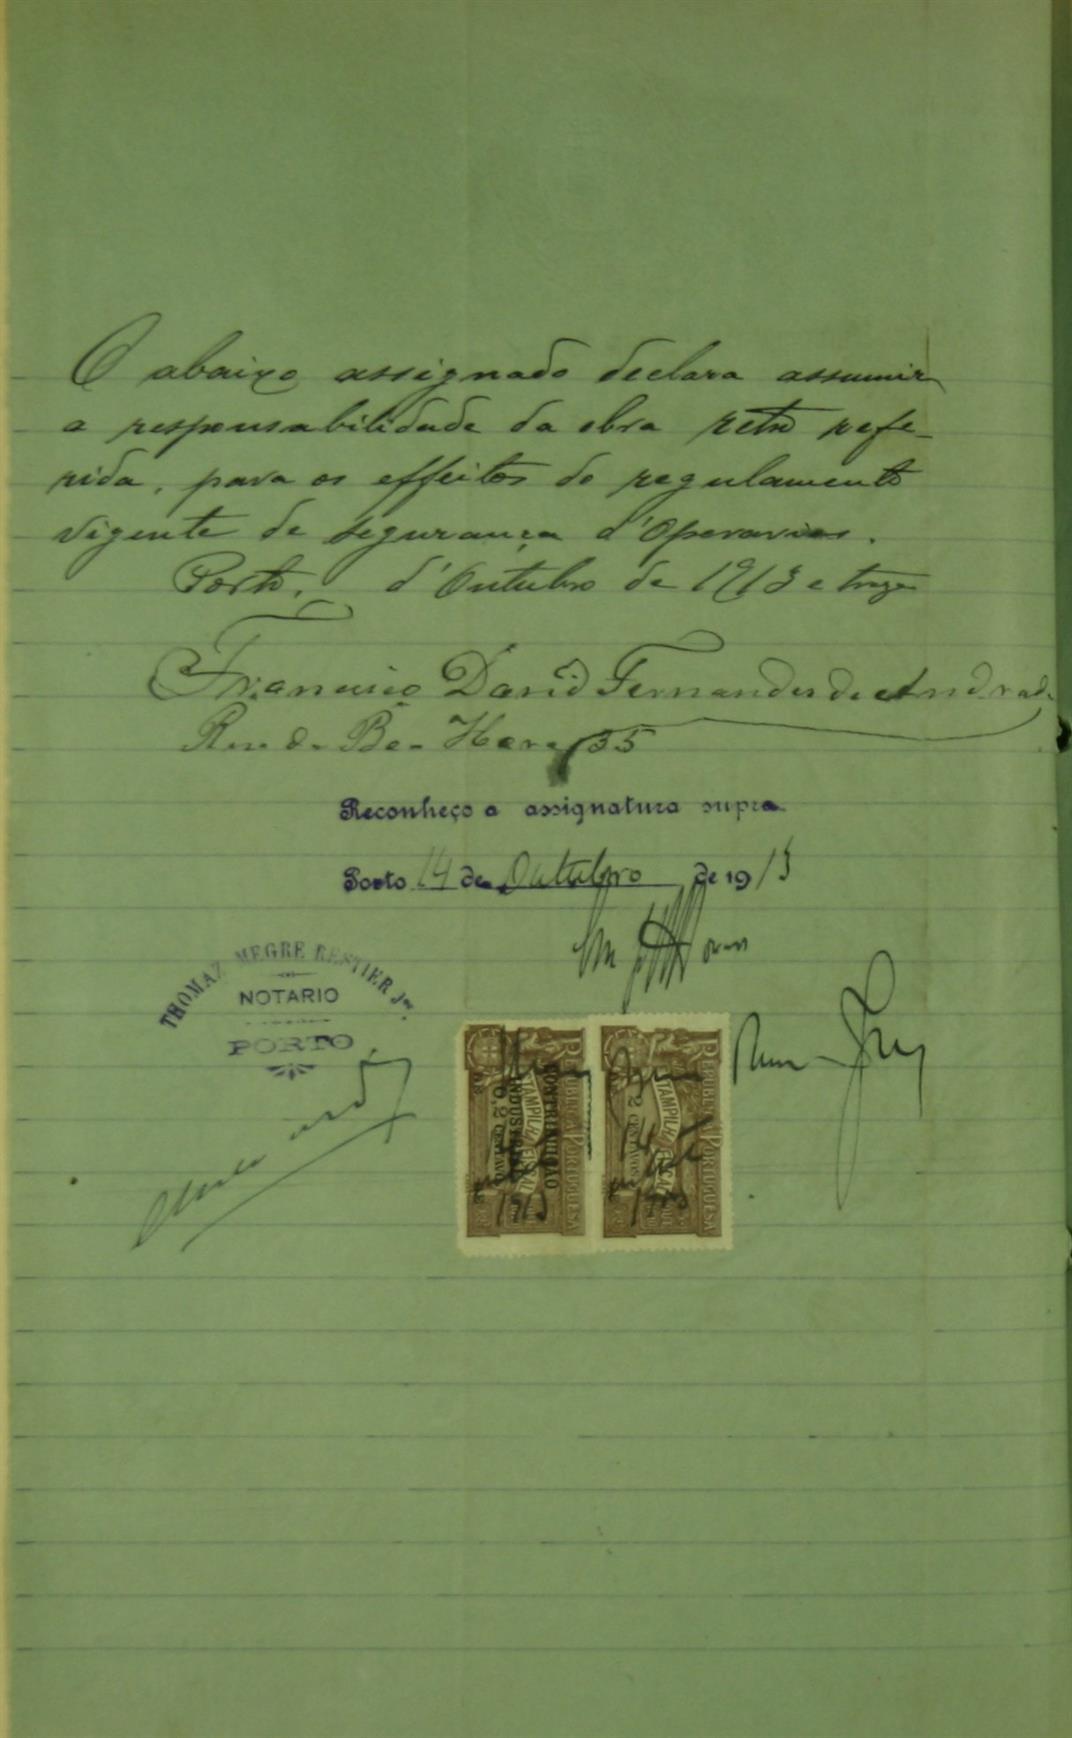 O abaixo assignado declara assumir
a responsabilidade da obra retro refe-
rida, para os effeitos do regulamento
vigente de segurança d'Operarios.
Porto, d'Outubro de 1913 e treze
Francisco David Fernandes de Andrade
Rua da Boa Hora 35
Reconheço a assignatura supra
Porto 14 de Outubro de 1913
THOMAZ MEGRE RESTIER Jor.
NOTARIO
PORTO
REPUBLICA PORTUGUESA
ESTAMPILHA FISCAL
CONTRIBUIÇÃO
INDUSTRIAL
0,2 CENTAVOS
REPUBLICA PORTUGUESA
ESTAMPILHA FISCAL
2 CENTAVOS